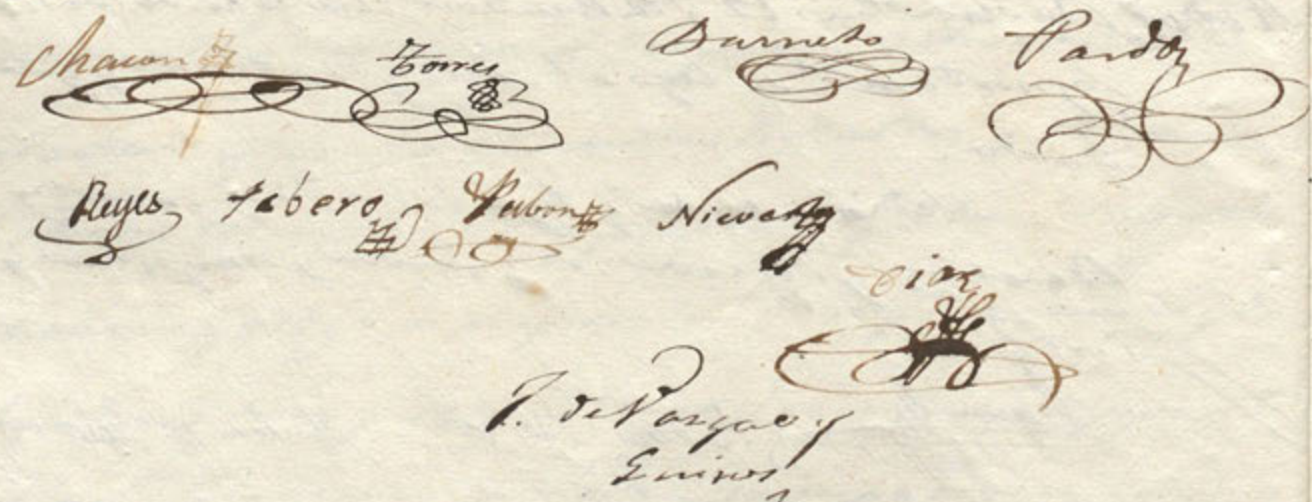 Chacon Torres Barreto Pardo
Reyes Tabero Pabon Nieva
Diaz
J. de Vargas y
Quiros